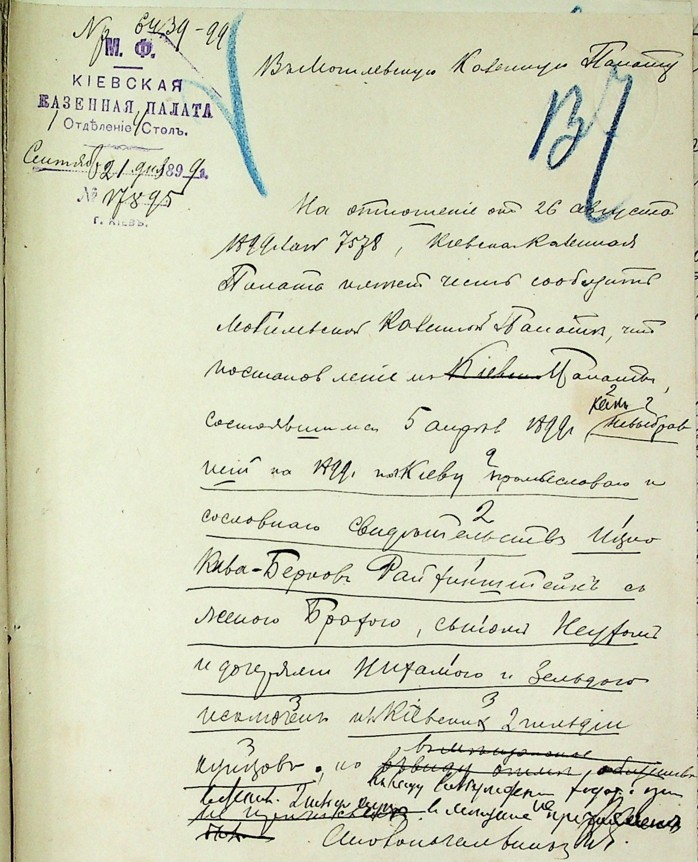 № 6439-99
М. Ф.
КІЕВСКАЯ
КАЗЕННАЯ ПАЛАТА
Отдѣленіе Столъ.
Сентяб 21 дня 1899 г.
№ 17895
Г. КІЕВЪ.
Въ Могилевскую Казенную Палату
137
На отношеніе отъ 26 августа
1899 г. за № 7578, Кіевская Казенная
Палата имѣетъ честь сообщить
Могилевской Казенной Палатѣ, что
постановленіемъ Палаты,
состоявшимся 5 апрѣля 1899 г. какъ невыбрав
шій на 1899 г. по Кіеву промысловаго и
сословнаго свидѣтельства Ицко
Акива-Берковъ Райфинштейнъ съ
женою Брохою, сыномъ Неухомъ
и дочерями Нихамою и Зельдою
исключенъ изъ Кіевскихъ 2 гильдіи
купцовъ, но